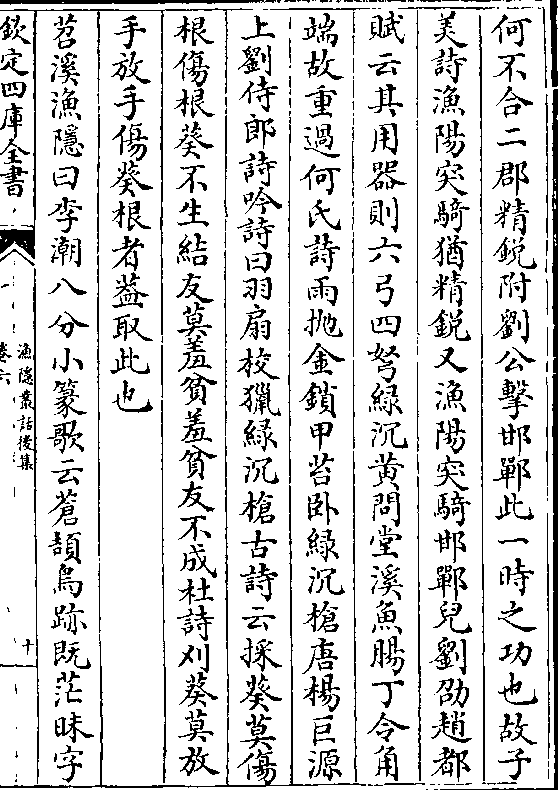 何不合二郡精鋭附劉公擊邯鄲此一時之功也故子
美詩漁陽突騎猶精鋭又漁陽突騎邯鄲兒劉劭趙都
賦云其用器則六弓四弩綠沉黄間堂溪魚腸丁令角
端故重過何氏詩雨抛金鎖甲苔卧綠沉槍唐楊巨源
上劉侍郎詩吟詩曰羽扇校獵綠沉槍古詩云採葵莫傷
根傷根葵不生結友莫羞貧羞貧友不成杜詩刈葵莫放
手放手傷葵根者葢取此也
苕溪漁隱曰李潮八分小篆歌云蒼頡鳥跡既茫昧字
欽定四庫全書
漁隱叢話後集
卷六
十